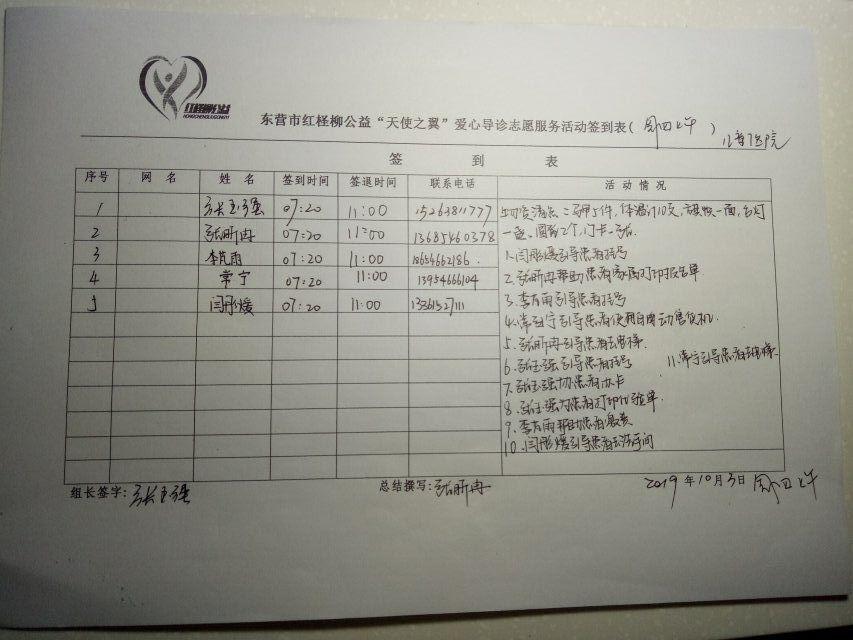 红柽柳公益
HONGCHENGLIUGONGYI
东营市红柽柳公益“天使之翼”爱心导诊志愿服务活动签到表(周四上午)
儿童医院
签到表
序号 网名 姓名 签到时间 签退时间 联系电话 活动情况
1 张玉强 07:20 11:00 15263811777
2 张昕冉 07:20 11:00 13685460378
3 李芃雨 07:20 11:00 18654662186.
4 常宁 07:20 11:00 13954666104
5 闫彤媛 07:20 11:00
物资清点:马甲5件,体温计10支,旗帜一面,台灯
一盏,
1.闫彤媛引导患者挂号
2.张昕冉帮助患者家属打印报告单
3.李芃雨引导患者挂号
4.常宁引导患者使用自动售货机.
5.张昕冉引导患者
6.张玉强引导患者挂号
11.常宁引导患者
7.张玉强协患者办卡
8.张玉强为患者打印化验单.
9.李芃雨帮助患者缴费
10.闫彤媛引导患者去洗手间
组长签字:张玉强
总结撰写:张昕冉
2019年10月3日 周四上午